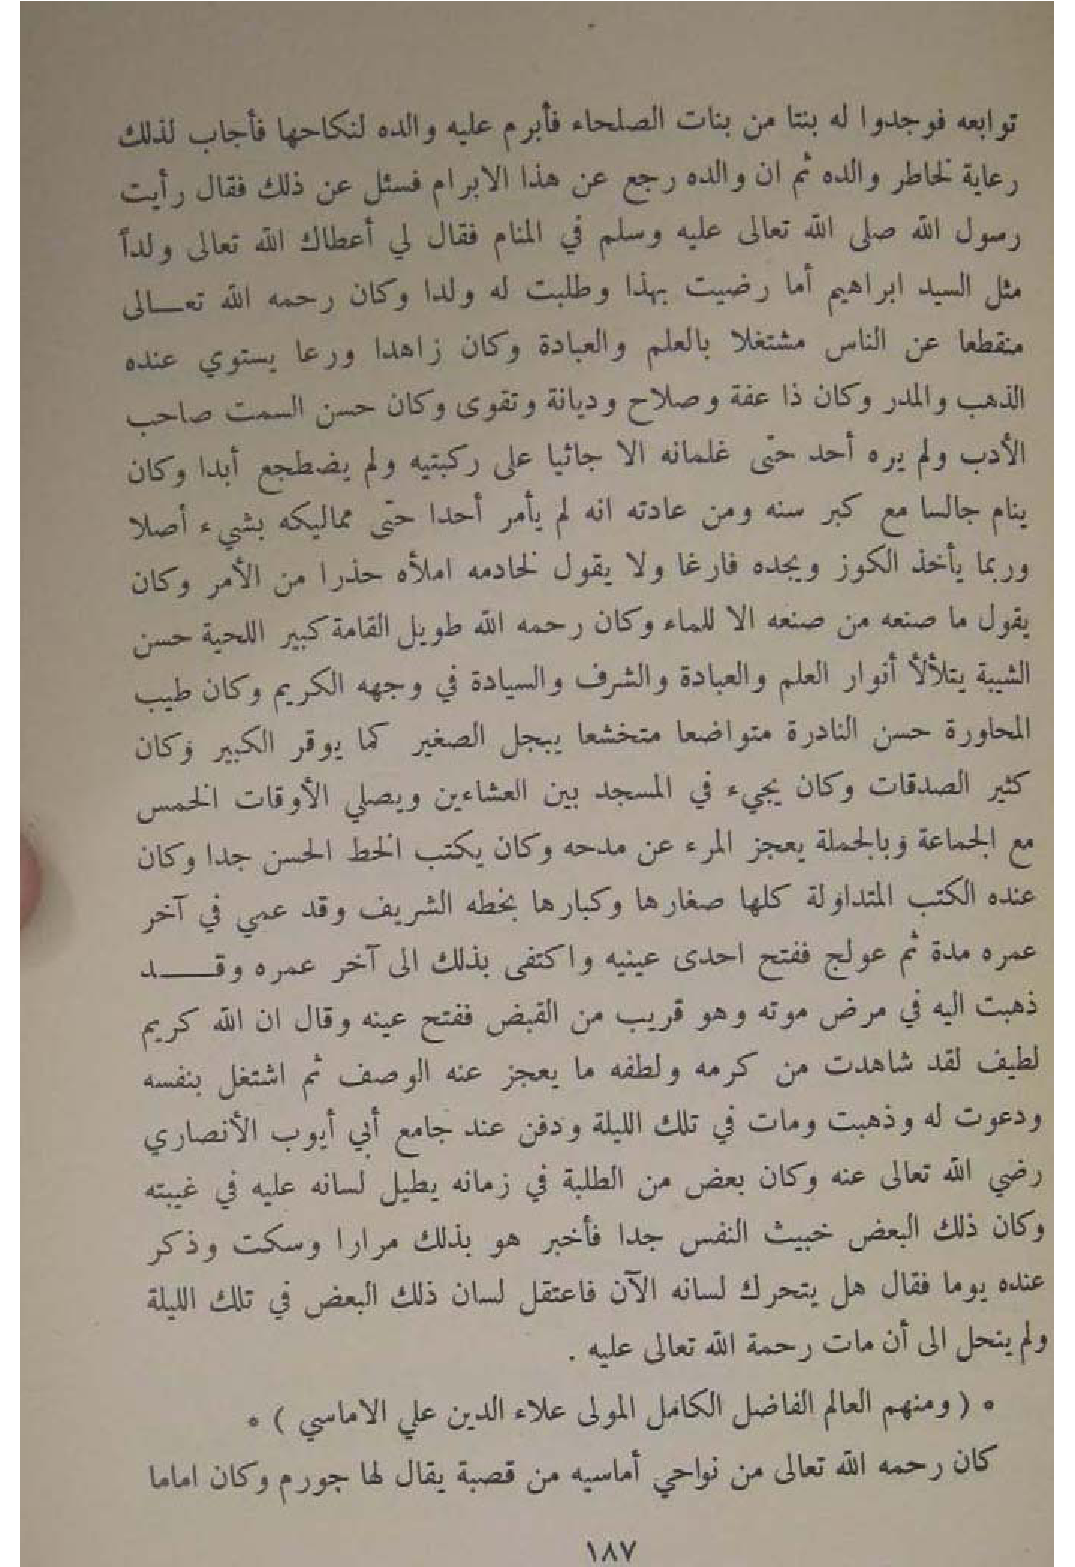 توابعه فوجدوا له بنتا من بنات الصلحاء فأبرم عليه والده لنكاحها فأجاب لذلك
رعاية لخاطر والده ثم ان والده رجع عن هذا الابرام فسئل عن ذلك فقال رأيت
رسول الله صلى الله تعالى عليه وسلم في المنام فقال لي أعطاك الله تعالى ولداً
مثل السيد ابراهيم أما رضيت بهذا وطلبت له ولدا وكان رحمه الله تعـــالى
منقطعا عن الناس مشتغلا بالعلم والعبادة وكان زاهدا ورعا يستوي عنده
الذهب والمدر وكان ذا عفة وصلاح وديانة وتقوى وكان حسن السمت صاحب
الأدب ولم يره أحد حتى غلمانه الا جاثيا على ركبتيه ولم يضطجع أبدا وكان
ينام جالسا مع كبر سنه ومن عادته انه لم يأمر أحدا حتى مماليكه بشيء أصلا
وربما يأخذ الكوز ويجده فارغا ولا يقول لخادمه املأه حذرا من الأمر وكان
يقول ما صنعه من صنعه الا للماء وكان رحمه الله طويل القامة كبير اللحية حسن
الشيبة يتلألأ أنوار العلم والعبادة والشرف والسيادة في وجهه الكريم وكان طيب
المحاورة حسن النادرة متواضعا متخشعا يبجل الصغير كما يوقر الكبير وكان
كثير الصدقات وكان يجيء في المسجد بين العشاءين ويصلي الأوقات الخمس
مع الجماعة وبالجملة يعجز المرء عن مدحه وكان يكتب الخط الحسن جدا وكان
عنده الكتب المتداولة كلها صغارها وكبارها بخطه الشريف وقد عمي في آخر
عمره مدة ثم عولج ففتح احدى عينيه واكتفى بذلك الى آخر عمره وقـــــد
ذهبت اليه في مرض موته وهو قريب من القبض ففتح عينه وقال ان الله كريم
لطيف لقد شاهدت من كرمه ولطفه ما يعجز عنه الوصف ثم اشتغل بنفسه
ودعوت له وذهبت ومات في تلك الليلة ودفن عند جامع أبي أيوب الأنصاري
رضي الله تعالى عنه وكان بعض من الطلبة في زمانه يطيل لسانه عليه في غيبته
وكان ذلك البعض خبيث النفس جدا فأخبر هو بذلك مرارا وسكت وذكر
عنده يوما فقال هل يتحرك لسانه الآن فاعتقل لسان ذلك البعض في تلك الليلة
ولم ينحل الى أن مات رحمة الله تعالى عليه .
* ( ومنهم العالم الفاضل الكامل المولى علاء الدين علي الاماسي ) *
كان رحمه الله تعالى من نواحي أماسيه من قصبة يقال لها جورم وكان اماما
١٨٧